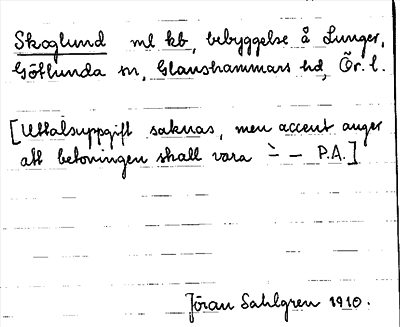 Skoglund ml kb, bebyggelse å Lunger,
Götlunda sn, Glanshammars hd, Ör. l.
[Uttalsuppgift saknas, men accent anger
att betoningen skall vara ` – – P.A.]
Jöran Sahlgren 1910.